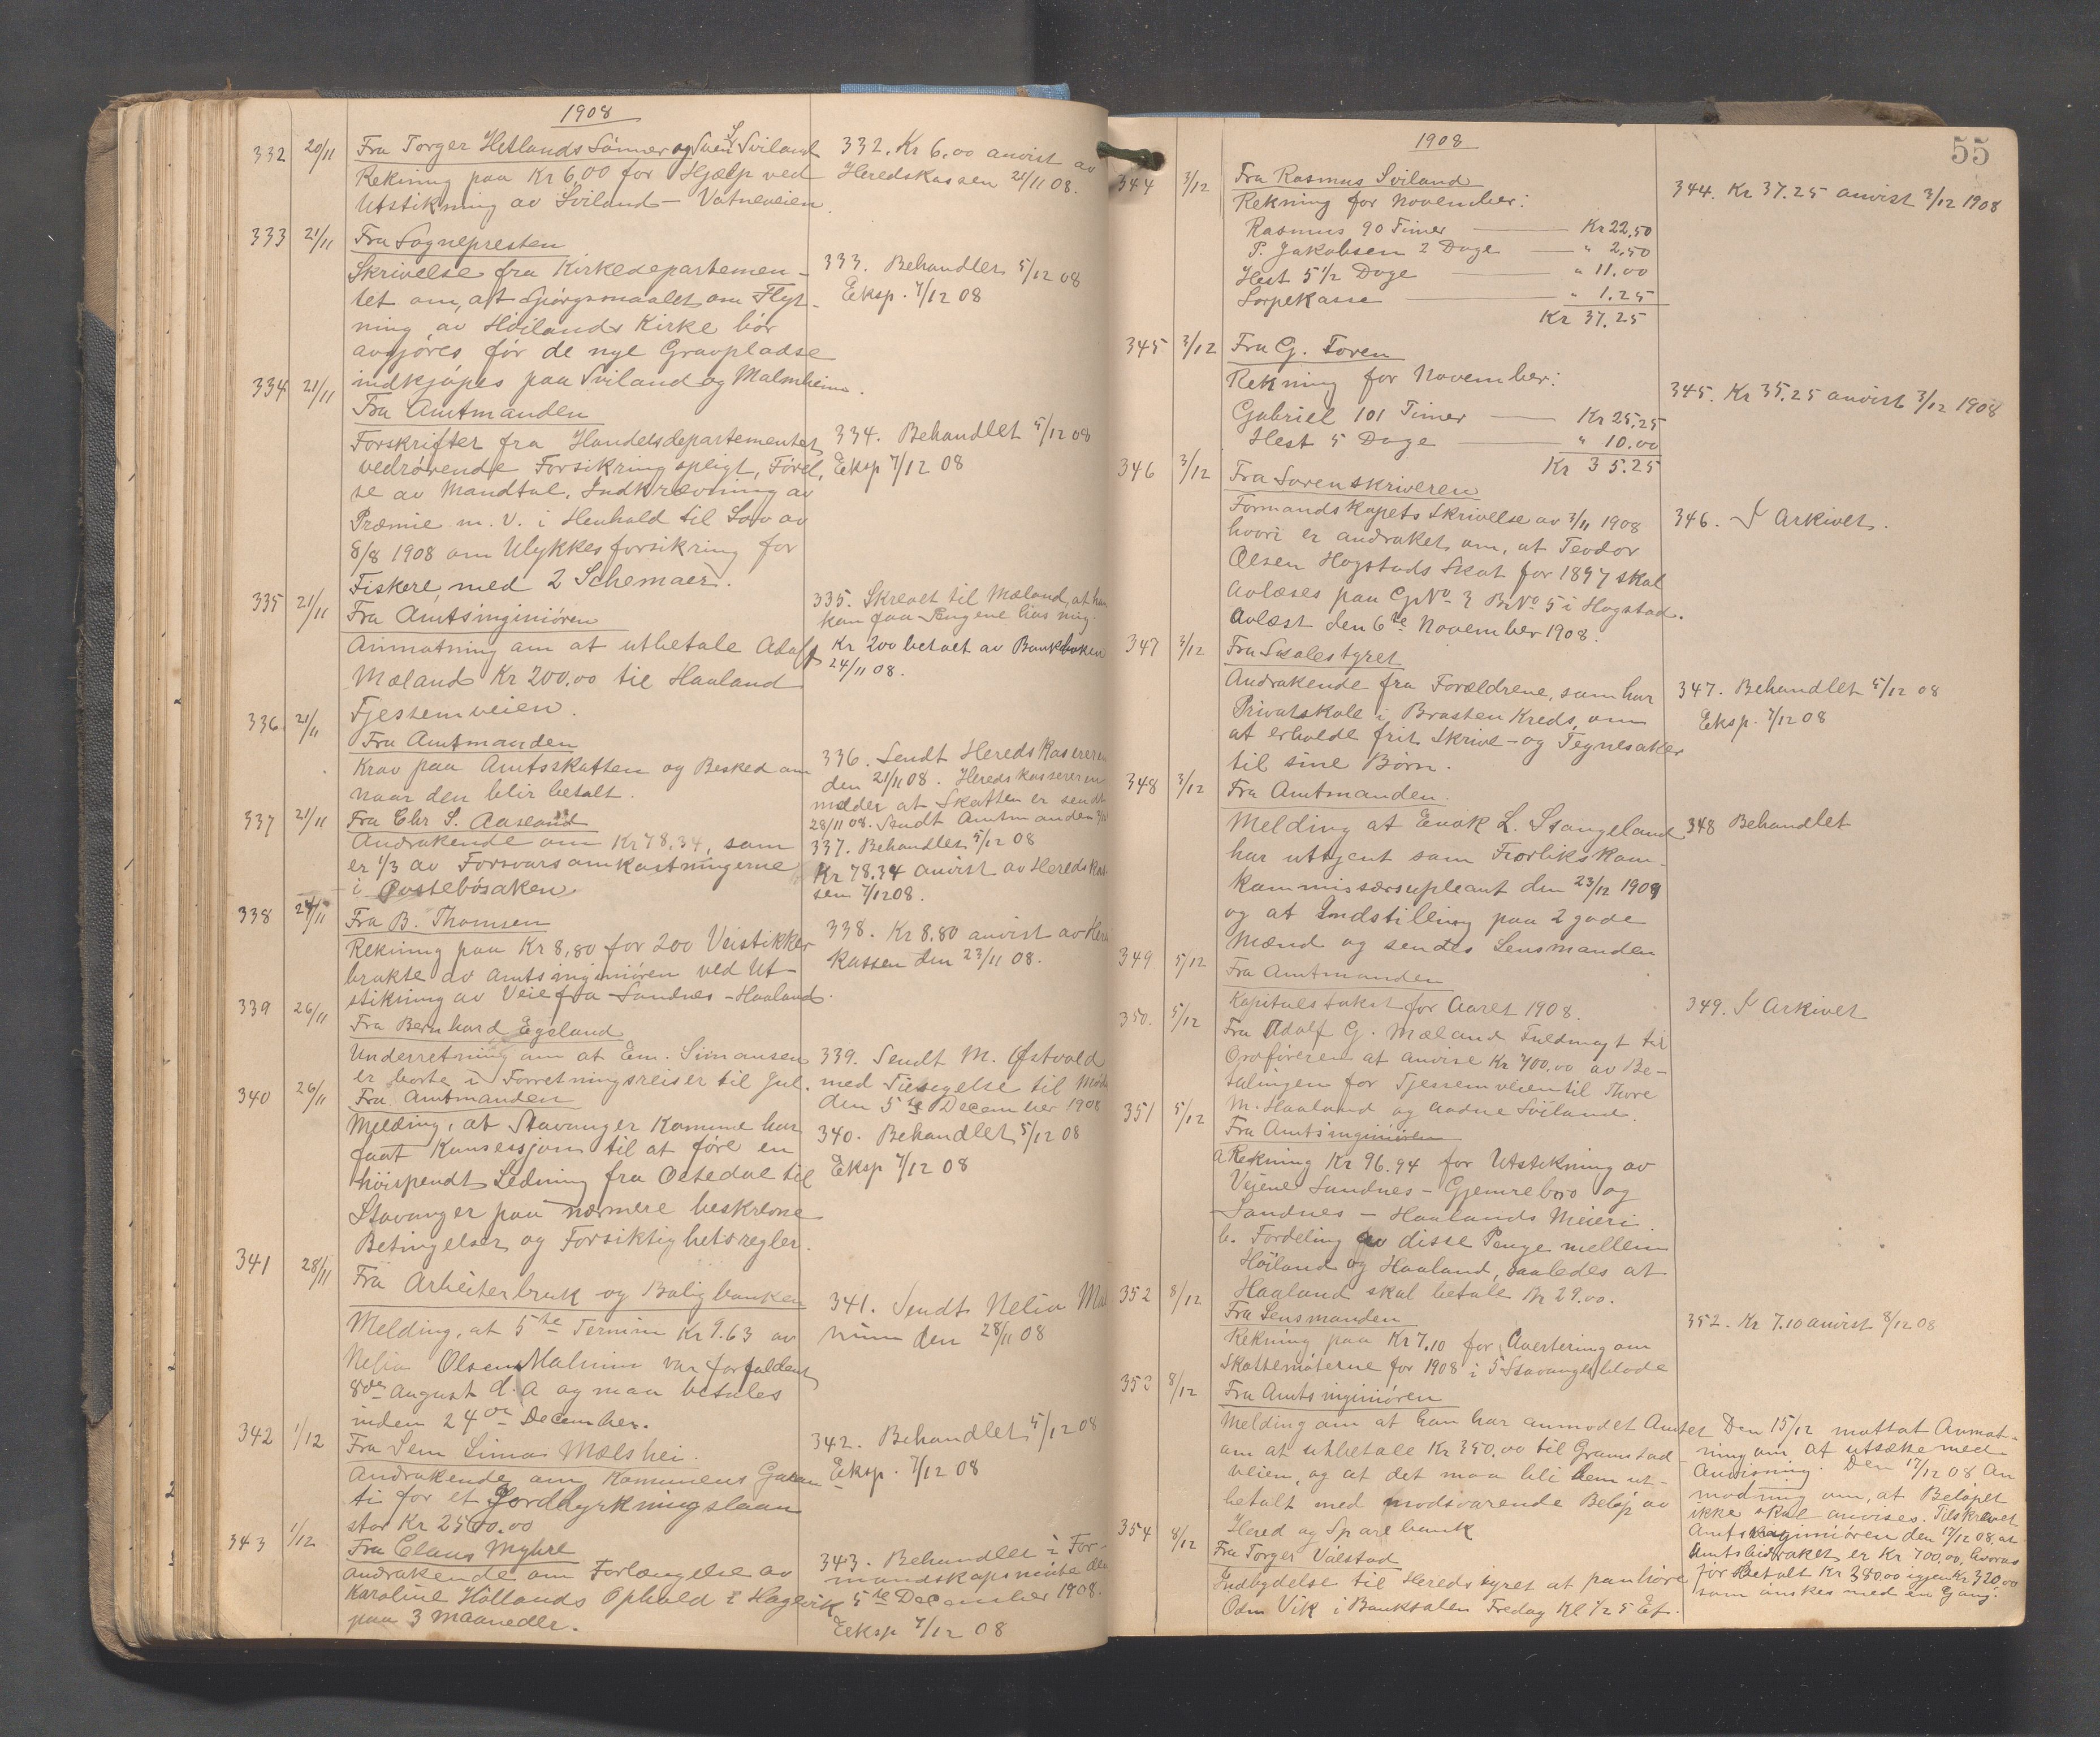 1908
332 20/11 Fra Torger Hetlands Sönner og Sven S. Sviland
Rekning paa Kr 6,00 for Hjælp ved
Utstikning av Sviland - Vatneveien.
332. Kr 6,00 anvist av
Heredskassen 21/11 08.
333 21/11 Fra Sognepresten
Skrivelse fra Kirkedepartemen-
tet om, at Spörgsmaalet om Flyt-
ning av Höilands Kirke bör
avgjöres för de nye Gravpladse
indkjöpes paa Sviland og Malmheim.
333. Behandlet 5/12 08
Eksp. 7/12 08
334 21/11 Fra Amtmanden
Forskrifter fra Handelsdepartementet
vedrörende Forsikringspligt, Förel-
se av Mandtal, Indkrævning av
Præmie m. v. i Henhold til Lov av
8/8 1908 om Ulykkesforsikring for
Fiskere, med 2 Schemaer.
334. Behandlet 5/12 08
Eksp 7/12 08
335 21/11 Fra Amtsingeniören
Anmotning om at utbetale Adolf
Mæland Kr 200.00 til Haaland
Tjessemveien.
335. Skrevet til Mæland, at han
kan faa Pengene hos mig.
Kr 200 betalt av Bankboken
24/11 08.
336 21/11 Fra Amtmanden
Krav paa Amtsskatten og Besked om
naar den blir betalt.
336. Sendt Heredskassereren
den 21/11 08. Heredskassereren
melder at Skatten er sendt
28/11 08. Sendt Amtmanden
337 21/11 Fra Chr S. Aasland
Andrakende om Kr 78.34, som
er 1/3 av Forsvarsomkostningerne
i Postebösaken.
337. Behandlet 5/12 08
Kr 78.34 anvist av Heredskas-
sen 7/12 08.
338 24/11 Fra B. Thomsen
Rekning paa Kr 8,80 for 200 Veistikker
brukte av Amtsingeniören ved Ut-
stikning av Veie fra Sandnes - Haaland.
338. Kr 8.80 anvist av Here
kassen den 23/11 08.
339 26/11 Fra Bernhard Egeland
Underretning om at Em. Simonsen
er borte i Forretningsreiser til Jul.
339. Sendt M. Østvold
med Tilsigelse til Möte
den 5te December 1908
340 26/11 Fra Amtmanden
Melding, at Stavanger Komune har
faat Konsessjon til at före en
höispendt Ledning fra Oltedal til
Stavanger paa nærmere beskrevne
Betingelser og Forsiktighetsregler.
340. Behandlet 5/12 08
Eksp 7/12 08
341 28/11 Fra Arbeiterbruk og Boligbanken
Melding, at 5te Termin Kr 9.63 av
Nelia Olsen Malmin var forfalden
8de August d. A og maa betales
inden 24de December.
341. Sendt Nelia Mal
min den 28/11 08
342 1/12 Fra Sem Simo Mælshei.
Andrakende om Kommunens Garan
ti for et Jorddyrkningslaan
stor Kr 2500.00
342. Behandlet 5/12 08
Eksp. 7/12 08
343 1/12 Fra Claus Myhre
Andrakende om Forlængelse av
Karoline Höllands Ophold i Hagevik
paa 3 Maaneder.
343. Behandlet i For-
mandskapsmöte den
5te December 1908.
Eeksp 7/12 08
55
1908
344 3/12 Fra Rasmus Sviland
Rekning for November:
Rasmus 90 Timer — Kr 22,50
T. Jakobsen 2 Dage — " 2,50
Hest 5 1/2 Dage — " 11.00
Sorpekasse — " 1.25
Kr 37.25
344. Kr 37.25 anvist 3/12 1908
345 3/12 Fra G. Foren
Rekning for November:
Gabriel 101 Timer — Kr 25,25
Hest 5 Dage — " 10.00
Kr 35.25
345. Kr 35.25 anvist 3/12 1908
346 3/12 Fra Sorenskriveren
Formandskapets Skrivelse av 3/11 1908
hvori er andraket om, at Teodor
Olsen Hogstads Skat for 1897 skal
avlæses paa G No 3 B No 5 i Hogstad.
Avlæst den 6te November 1908.
346. I Arkivet.
347 3/12 Fra Skolestyret
Andrakende fra Forældrene, som har
Privatskole i Brasten Kreds, om
at erholde frit Skrive- og Tegnesaker
til sine Börn.
347. Behandlet 5/12 08
Eksp. 7/12 08
348 3/12 Fra Amtmanden.
Melding at Enok L. Stangeland
har uttjent som Forlikskom-
kommissærsupleant den 23/12 1909
og at Indstilling paa 2 gode
Mænd og sendes Lensmanden
348 Behandlet
349 5/12 Fra Amtmanden
Kapitalstakst for Aaret 1908.
349. I Arkivet
350. 5/12 Fra Adolf G. Mæland Fuldmagt til
Ordföreren at anvise Kr 700.00 av Be-
talingen for Tjessemveien til Thore
M. Haaland og Aadne Söiland.
351 5/12 Fra Amtsingeniören
a Rekning Kr 96.94 for Utstikning av
Veiene Sandnes - Gjemrebro og
Sandnes - Haalands Meieri.
b. Fordeling av disse Penge mellem
Höiland og Haaland, saaledes at
Haaland skal betale Kr 29.00.
352 8/12 Fra Lensmanden
Rekning paa Kr 7.10 for Avertering om
Skattemöterne for 1908 i 5 Stavangerblade
352. Kr 7.10 anvist 8/12 08
353 8/12 Fra Amtsingeniören
Melding om at han har anmodet Amtet
om at utbetale Kr 350.00 til Gramstad
veien, og at det maa bli dem ut-
betalt med modsvarende Belöp av
Hered og Sparebank
Den 15/12 mottat Anmot-
ning om at utsætte med
Anvisning. Den 17/12 08 An
modning om, at Belöpet
ikke skal anvises. Tilskrevet
Amtsingeniören den 17/12 08, at
Amtsbidraket er Kr 700.00, hvorav
för betalt Kr 380.00 igjen Kr 320.00
som önskes med en Gang.
354 8/12 Fra Torger Válstad
Indbydelse til Heredsstyret at paahöre
Odm Vik i Banksalen Fredag Kl 1/2 5 Ef.